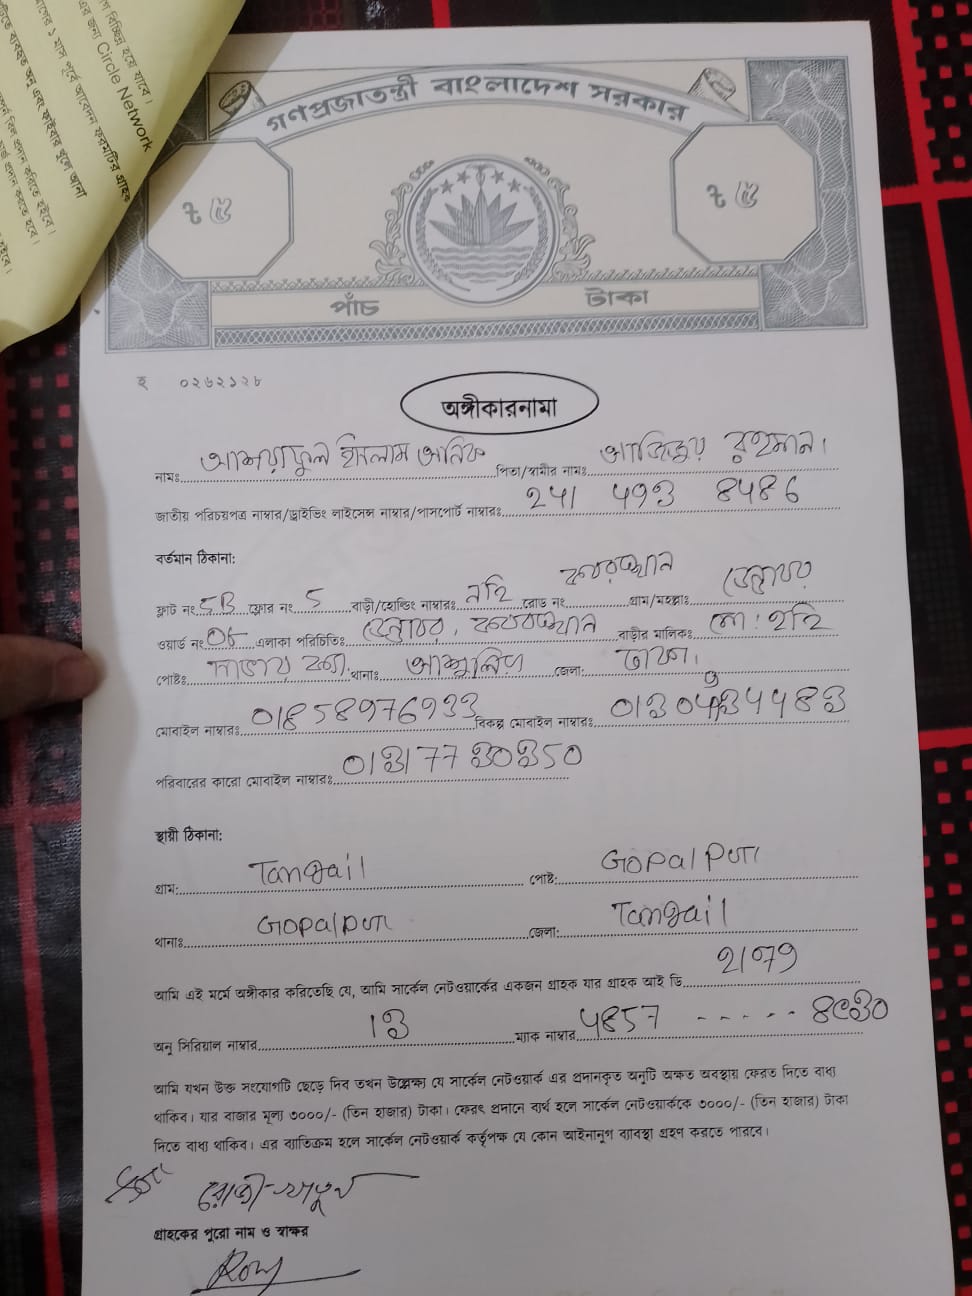 বিচ্ছিন্ন হয়ে যাবে।
এর জন্য Circle Network
১ মাস পূর্বে আবেদন ফরমটির গ্রাহক
ব্যবহৃত অনু এবং ফাইবার খুলে আনা
বিল প্রদান করিতে হইবে।
প্রদান করতে হবে।
গণপ্রজাতন্ত্রী বাংলাদেশ সরকার
৳ ৫
৳ ৫
পাঁচ টাকা
হ ০২৬২১২৮
অঙ্গীকারনামা
নামঃ আশরাফুল ইসলাম অনিক পিতা/স্বামীর নামঃ আজিজুর রহমান।
জাতীয় পরিচয়পত্র নাম্বার/ড্রাইভিং লাইসেন্স নাম্বার/পাসপোর্ট নাম্বারঃ 241 493 8486
বর্তমান ঠিকানা:
ফ্লাট নং 5B ফ্লোর নং 5 বাড়ী/হোল্ডিং নাম্বারঃ নাই রোড নং কবরস্থান গ্রাম/মহল্লাঃ
ওয়ার্ড নং 05 এলাকা পরিচিতিঃ কবরস্থান বাড়ীর মালিকঃ
পোষ্টঃ থানাঃ আশুলিয়া জেলা: ঢাকা।
মোবাইল নাম্বারঃ 01858976933 বিকল্প মোবাইল নাম্বারঃ
পরিবারের কারো মোবাইল নাম্বারঃ 01317730350
স্থায়ী ঠিকানা:
গ্রাম: Tangail পোষ্ট: Gopalpur
থানাঃ Gopalpur জেলা: Tangail
আমি এই মর্মে অঙ্গীকার করিতেছি যে, আমি সার্কেল নেটওয়ার্কের একজন গ্রাহক যার গ্রাহক আই ডি 2179
অনু সিরিয়াল নাম্বার 13 ম্যাক নাম্বার 4857 - - - - - 8C30
আমি যখন উক্ত সংযোগটি ছেড়ে দিব তখন উল্লেক্ষ্য যে সার্কেল নেটওয়ার্ক এর প্রদানকৃত অনুটি অক্ষত অবস্থায় ফেরত দিতে বাধ্য
থাকিব। যার বাজার মূল্য ৩০০০/- (তিন হাজার) টাকা। ফেরৎ প্রদানে ব্যর্থ হলে সার্কেল নেটওয়ার্ককে ৩০০০/- (তিন হাজার) টাকা
দিতে বাধ্য থাকিব। এর ব্যাতিক্রম হলে সার্কেল নেটওয়ার্ক কর্তৃপক্ষ যে কোন আইনানুগ ব্যাবস্থা গ্রহণ করতে পারবে।
গ্রাহকের পুরো নাম ও স্বাক্ষর
Rony